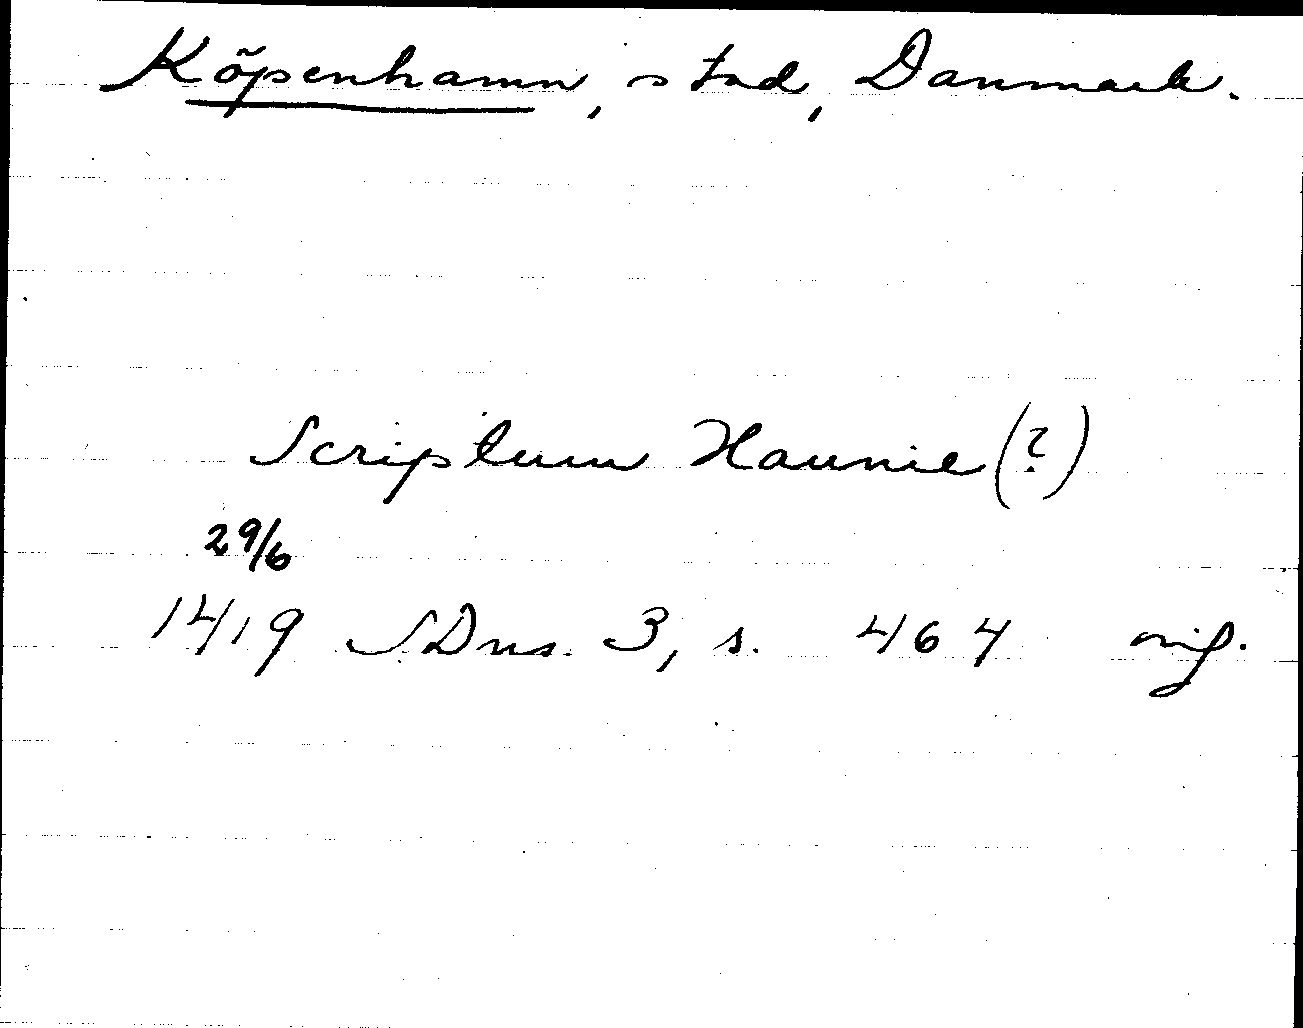 Köpenhamn, stad, Danmark.
Scriptum Haunie (?)
29/6
1419 SDns. 3, s. 464 orig.